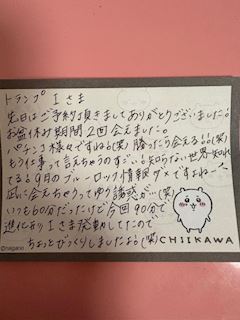 トランプIさま
先日はご予約頂きましてありがとうございました!!
お盆休み期間2回会えました。
パチンコ様々ですね!!(笑)勝ったら会える!!(笑)
もう仕事って言えちゃうのすごい!!知らない世界知れ
てる♪9月のブルーロック情報ダメですよね…
風に会えちゃうってゆう誘惑が…(笑)
いつも60分だったけど今回90分で
Iさま発動してたので
ちょっとびっくりしました!!(笑)
CHIIKAWA
©nagano